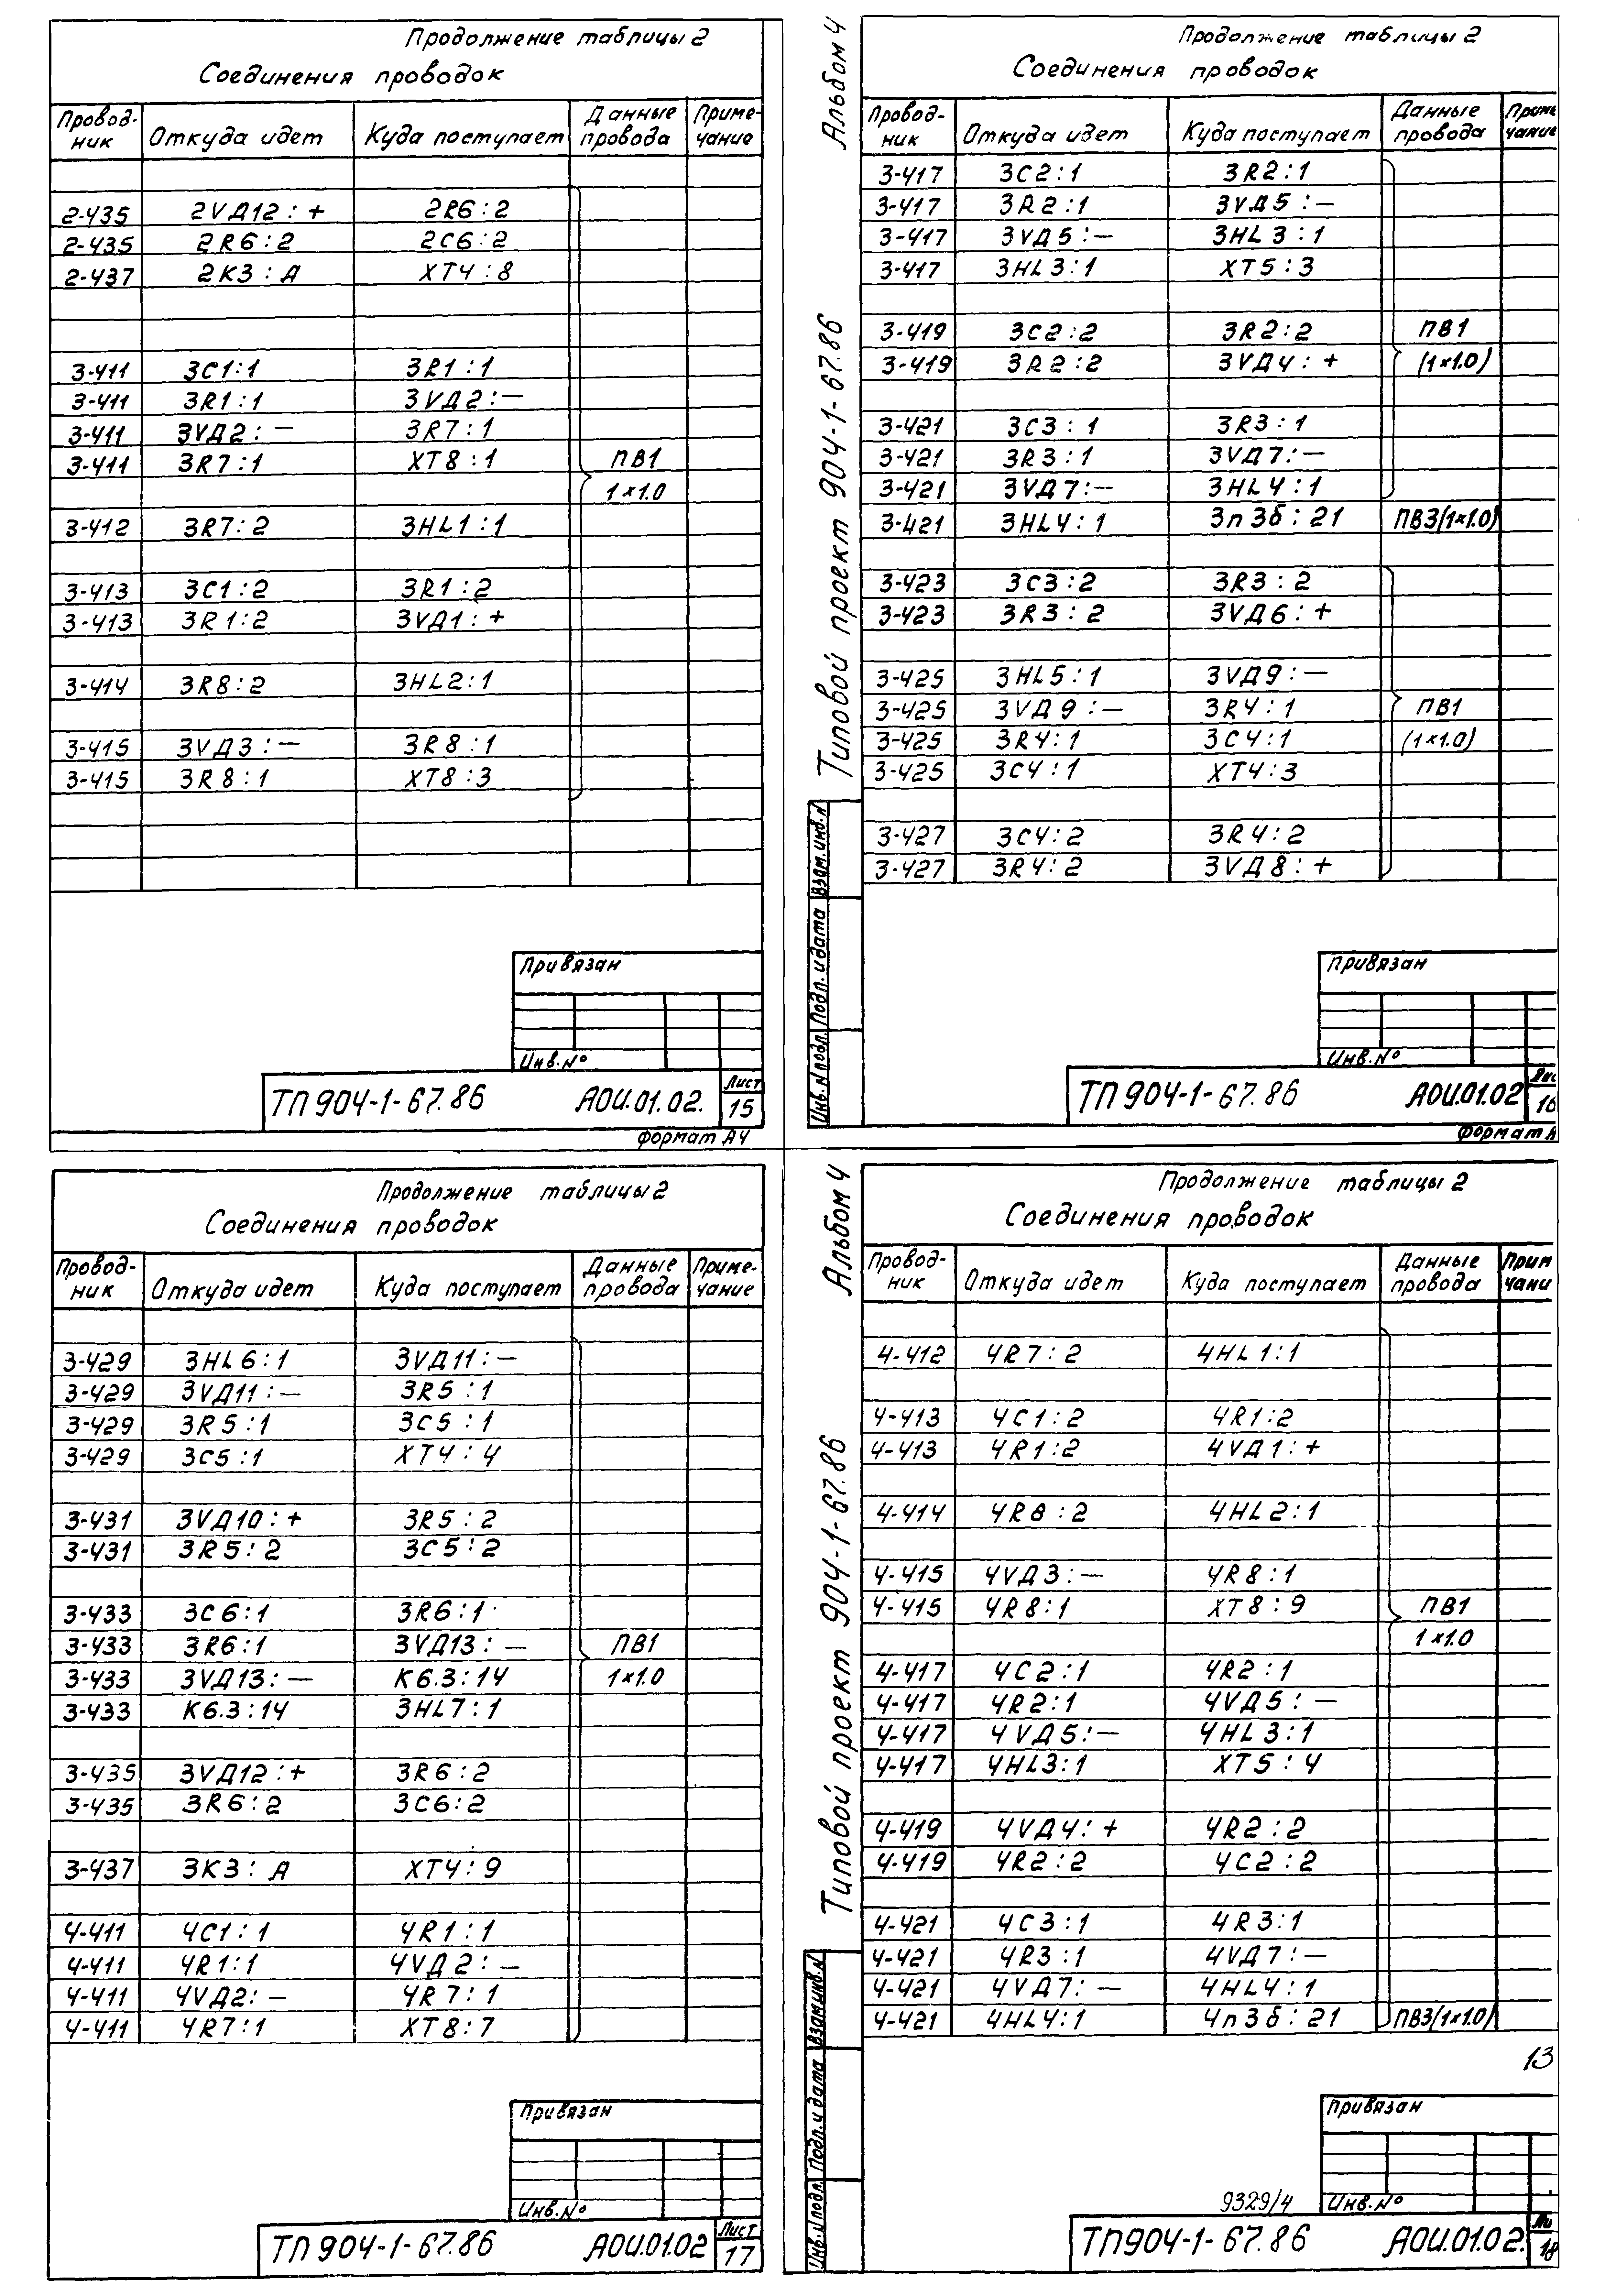 Продолжение таблицы 2
Соединения проводок
Провод-ник Откуда идет Куда поступает Данные провода Приме-чание
2-435 2VД12 : + 2R6 : 2
2-435 2R6 : 2 2C6 : 2
2-437 2К3 : А ХТ4 : 8
3-411 3C1 : 1 3R1 : 1
3-411 3R1 : 1 3VД2 : —
3-411 3VД2 : — 3R7 : 1
3-411 3R7 : 1 ХТ8 : 1 ПВ1
1×1.0
3-412 3R7 : 2 3HL1 : 1
3-413 3C1 : 2 3R1 : 2
3-413 3R1 : 2 3VД1 : +
3-414 3R8 : 2 3HL2 : 1
3-415 3VД3 : — 3R8 : 1
3-415 3R8 : 1 ХТ8 : 3
Привязан
Инв.№
ТП 904-1-67.86 АОИ.01.02. Лист 15
формат А4
Альбом 4
Типовой проект 904-1-67.86
Инв.N подл. Подп. и дата Взам.инв.N
Продолжение таблицы 2
Соединения проводок
Провод-ник Откуда идет Куда поступает Данные провода Приме чание
3-417 3C2 : 1 3R2 : 1
3-417 3R2 : 1 3VД5 : —
3-417 3VД5 : — 3HL3 : 1
3-417 3HL3 : 1 ХТ5 : 3
3-419 3C2 : 2 3R2 : 2 ПВ1
3-419 3R2 : 2 3VД4 : + (1×1.0)
3-421 3C3 : 1 3R3 : 1
3-421 3R3 : 1 3VД7 : —
3-421 3VД7 : — 3HL4 : 1
3-421 3HL4 : 1 3п3б : 21 ПВ3(1×1.0)
3-423 3C3 : 2 3R3 : 2
3-423 3R3 : 2 3VД6 : +
3-425 3HL5 : 1 3VД9 : —
3-425 3VД9 : — 3R4 : 1 ПВ1
3-425 3R4 : 1 3C4 : 1 (1×1.0)
3-425 3C4 : 1 ХТ4 : 3
3-427 3C4 : 2 3R4 : 2
3-427 3R4 : 2 3VД8 : +
Привязан
Инв.№
ТП 904-1-67.86 АОИ.01.02 Лис 16
Формат А
Продолжение таблицы 2
Соединения проводок
Провод-ник Откуда идет Куда поступает Данные провода Приме-чание
3-429 3HL6 : 1 3VД11 : —
3-429 3VД11 : — 3R5 : 1
3-429 3R5 : 1 3C5 : 1
3-429 3C5 : 1 ХТ4 : 4
3-431 3VД10 : + 3R5 : 2
3-431 3R5 : 2 3C5 : 2
3-433 3C6 : 1 3R6 : 1
3-433 3R6 : 1 3VД13 : — ПВ1
3-433 3VД13 : — К6.3 : 14 1×1.0
3-433 К6.3 : 14 3HL7 : 1
3-435 3VД12 : + 3R6 : 2
3-435 3R6 : 2 3C6 : 2
3-437 3К3 : А ХТ4 : 9
4-411 4C1 : 1 4R1 : 1
4-411 4R1 : 1 4VД2 : —
4-411 4VД2 : — 4R7 : 1
4-411 4R7 : 1 ХТ8 : 7
Привязан
Инв.№
ТП 904-1-67.86 АОИ.01.02 Лист 17
Альбом 4
Типовой проект 904-1-67.86
Инв.N подл. Подп. и дата Взам.инв.N
Продолжение таблицы 2
Соединения проводок
Провод-ник Откуда идет Куда поступает Данные провода Прим чани
4-412 4R7 : 2 4HL1 : 1
4-413 4C1 : 2 4R1 : 2
4-413 4R1 : 2 4VД1 : +
4-414 4R8 : 2 4HL2 : 1
4-415 4VД3 : — 4R8 : 1
4-415 4R8 : 1 ХТ8 : 9 ПВ1
1×1.0
4-417 4C2 : 1 4R2 : 1
4-417 4R2 : 1 4VД5 : —
4-417 4VД5 : — 4HL3 : 1
4-417 4HL3 : 1 ХТ5 : 4
4-419 4VД4 : + 4R2 : 2
4-419 4R2 : 2 4C2 : 2
4-421 4C3 : 1 4R3 : 1
4-421 4R3 : 1 4VД7 : —
4-421 4VД7 : — 4HL4 : 1
4-421 4HL4 : 1 4п3б : 21 ПВ3(1×1.0)
13
Привязан
9329/4 Инв.№
ТП 904-1-67.86 АОИ.01.02. Ли 18